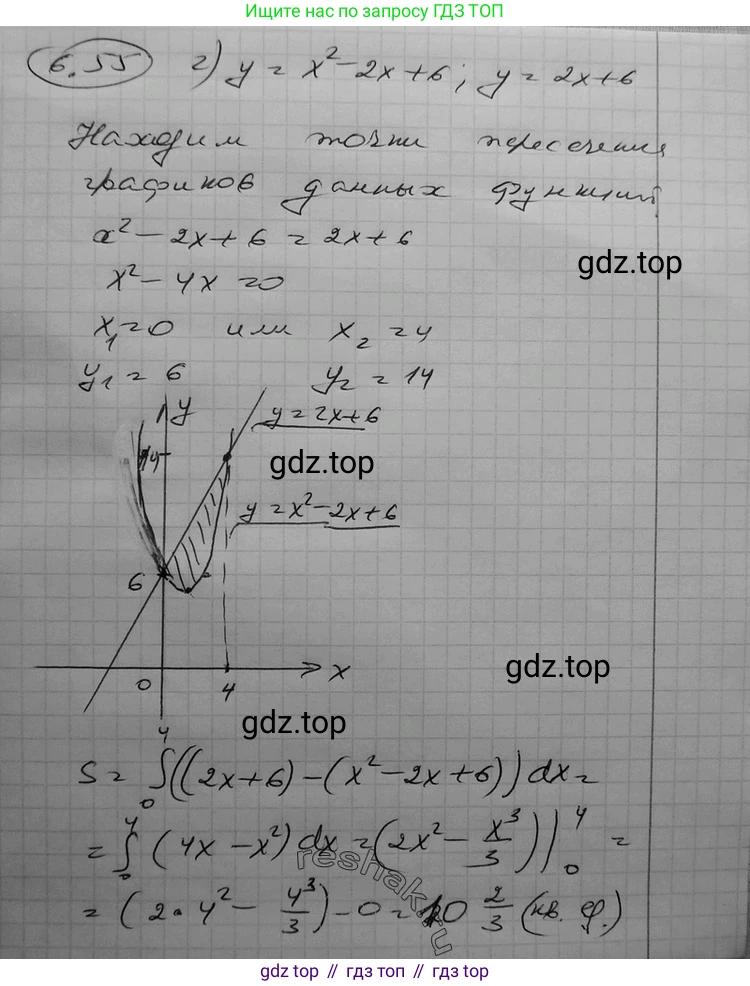 Ищите нас по запросу ГДЗ ТОП
6.55 г) y = x² - 2x + 6; y = 2x + 6
Находим точки пересечения
графиков данных функций
x² - 2x + 6 = 2x + 6
gdz.top
x² - 4x = 0
x₁ = 0 или x₂ = 4
y₁ = 6 y₂ = 14
y
y = 2x + 6
14
gdz.top
y = x² - 2x + 6
6
gdz.top
x
0 4
gdz.top
S = ∫₀⁴ ((2x + 6) - (x² - 2x + 6)) dx =
= ∫₀⁴ (4x - x²) dx = (2x² - x³/3) |₀⁴ =
reshak.ru
= (2 · 4² - 4³/3) - 0 = 10 2/3 (кв. ед.)
gdz top // гдз топ // gdz.top